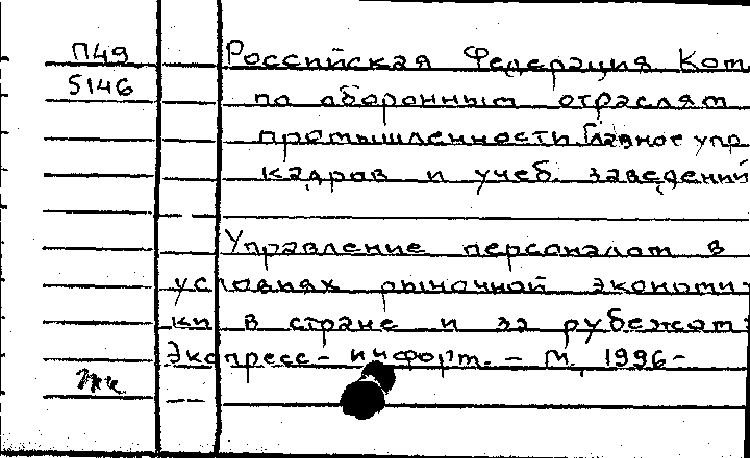 П49 Российская Федерация Ком
5146 по оборонным отраслям
промышленности. Главное упр
кадров и учеб. заведений
Управление персоналом в
условиях рыночной экономи-
ки в стране и за рубежом:
Экспресс-информ. – М., 1996-